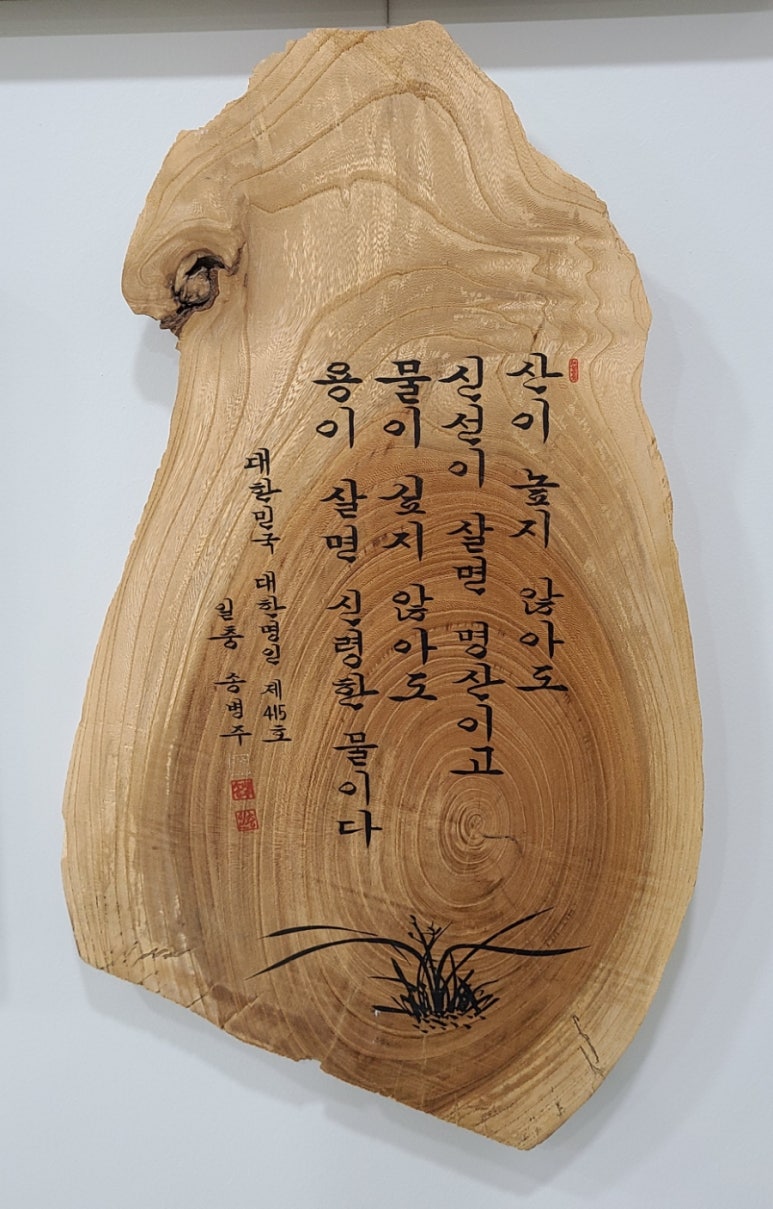 산이 높지 않아도
신선이 살면 명산이고
물이 깊지 않아도
용이 살면 신령한 물이다
대한민국 대한명인 제415호
일충 송병주